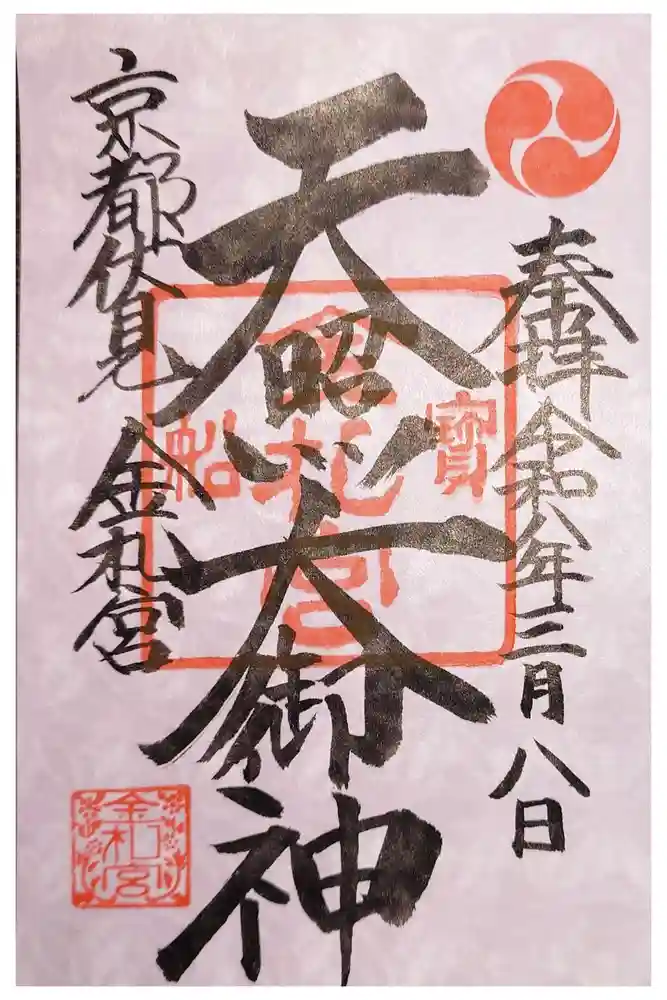 奉拝
令和八年三月八日
天照大御神
京都伏見
金札宮
寳
金札宮
船
金札宮